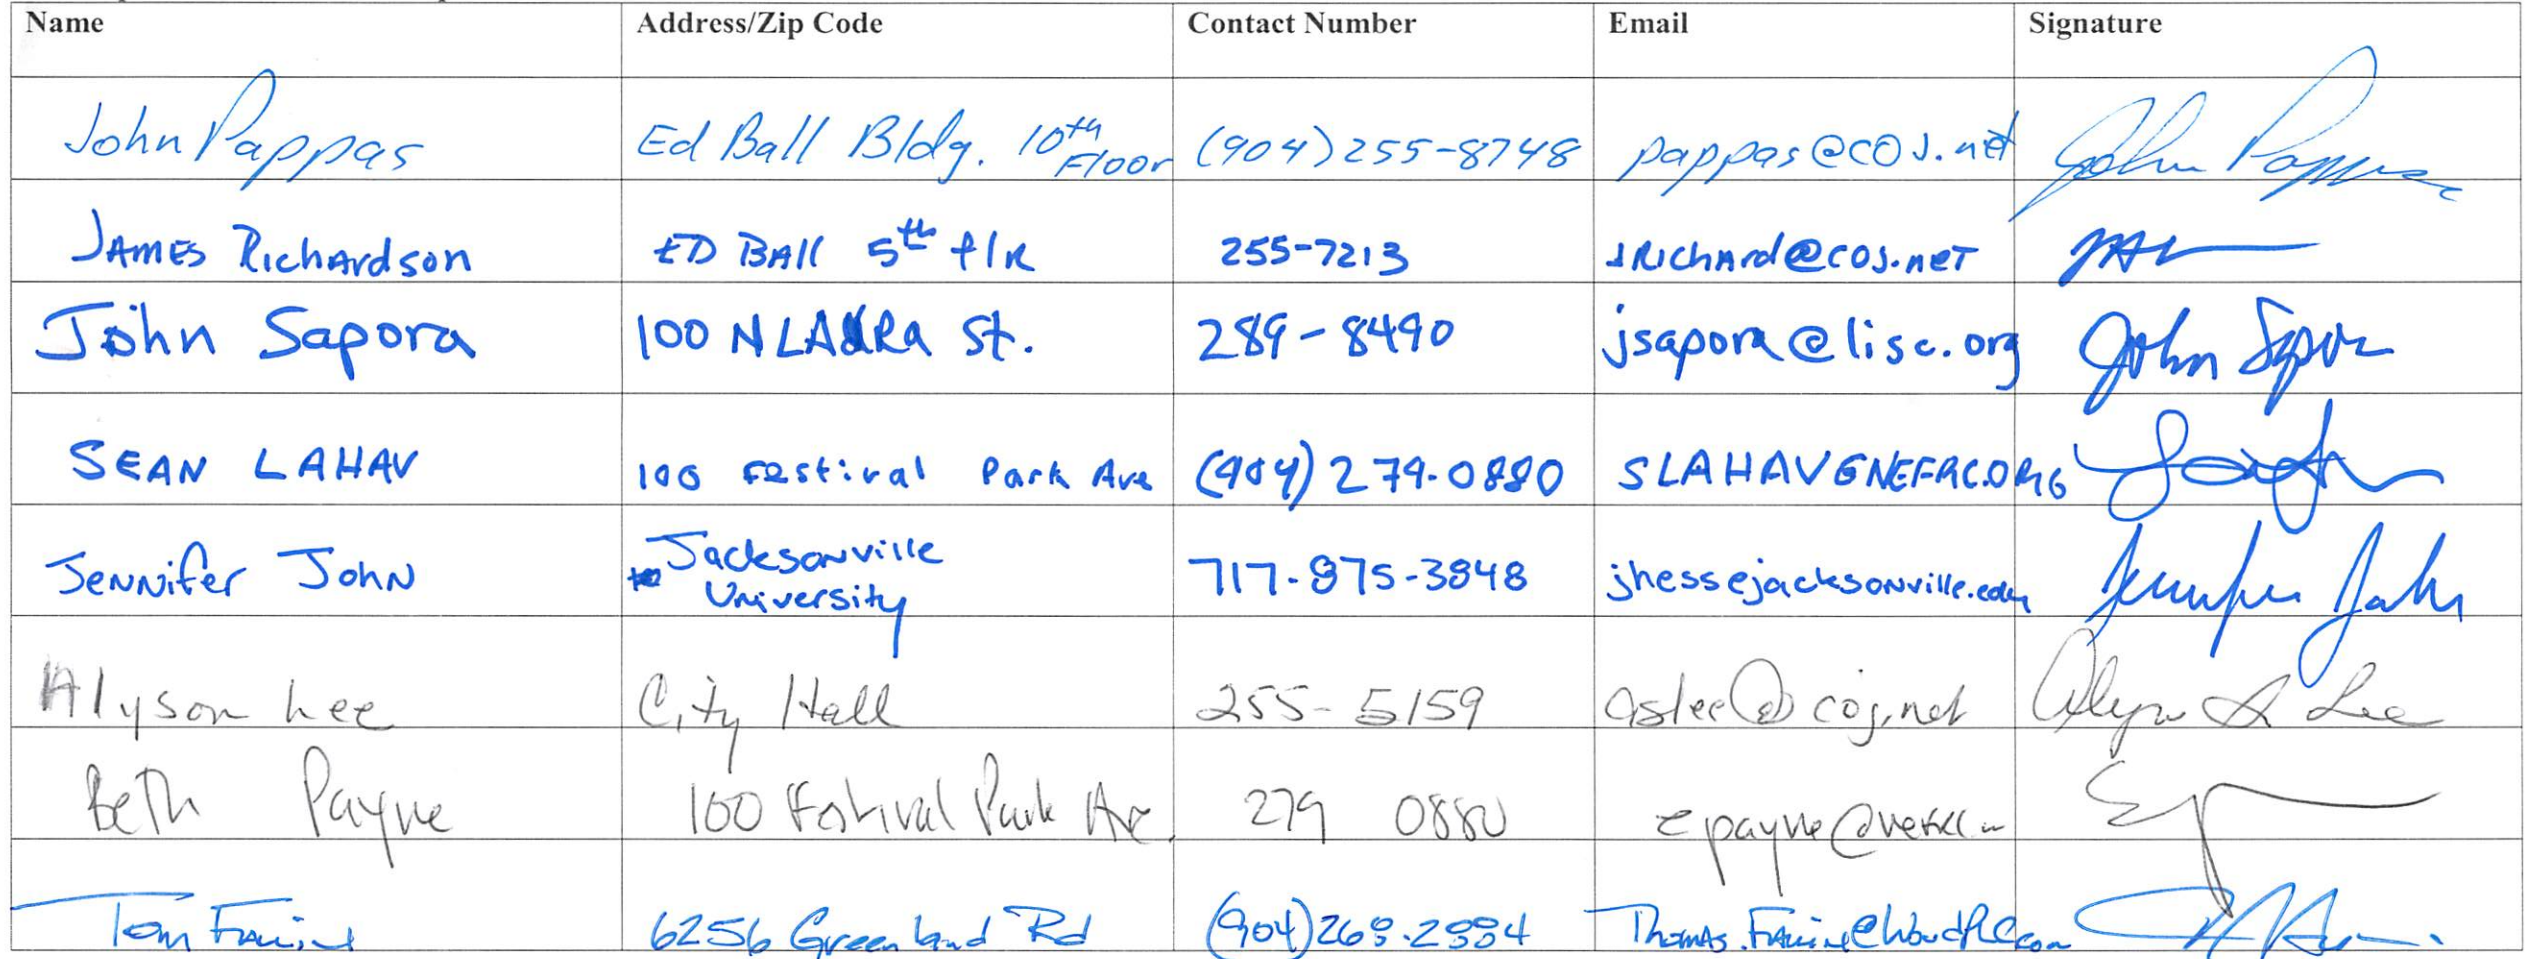 Name Address/Zip Code Contact Number Email Signature
John Pappas Ed Ball Bldg. 10th Floor (904) 255-8748 pappas@coj.net John Pappas
JAMES Richardson ED BAll 5th flR 255-7213 JRichard@coj.net
John Sapora 100 N LAURA St. 289-8490 jsapora@lisc.org John Sapora
SEAN LAHAV 100 Festival Park Ave (904) 279-0880 SLAHAV@NEFRC.ORG
Jennifer John Jacksonville University 717-875-3848 jhessejacksonville.edu Jennifer John
Alyson Lee City Hall 255-5159 aslee@coj.net Alyson S Lee
Beth Payne 100 Festival Park Ave 279 0880
Tom 6256 Greenland Rd (904)268-2884